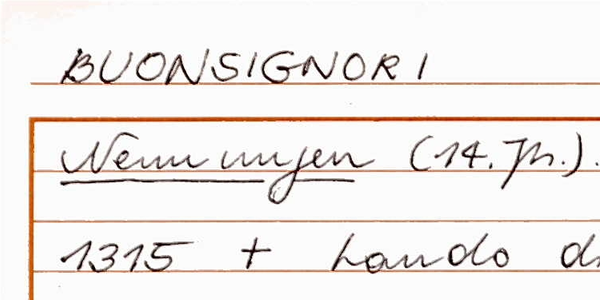 BUONSIGNORI
Nennungen (14. Jh.).
1315 + Lando di